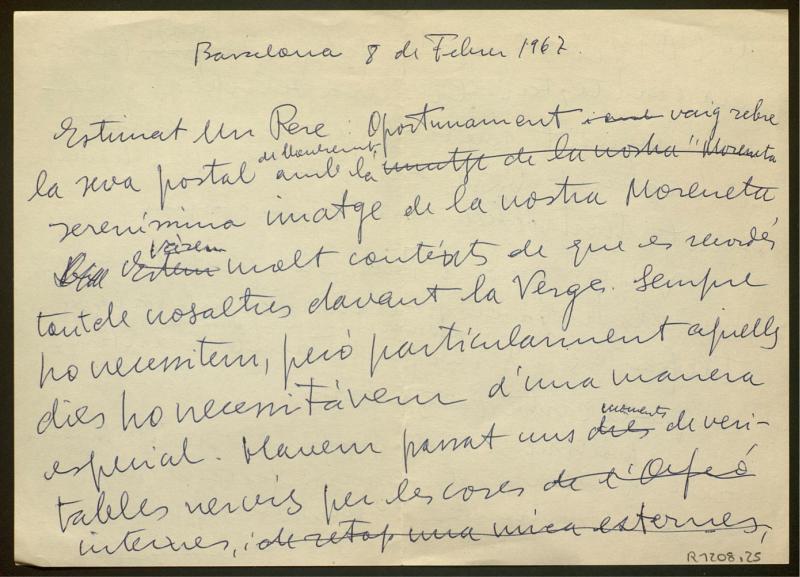 Barcelona 8 de Febrer 1967.
Estimat Mn Pere: Oportunament i amb vaig rebre
la seva postal de Montserrat amb la imatge de la nostra "Moreneta
sereníssima imatge de la nostra Moreneta
Vàrem
Estem molt contents de que es recordés
tant de nosaltres davant la Verge. Sempre
ho necessitem, però particularment aquells
dies ho necessitàvem d'una manera
especial. Havem passat uns dies moments de veri-
tables nervis per les coses de l'Orfeó
internes, i de retop una mica externes,
R1208,25